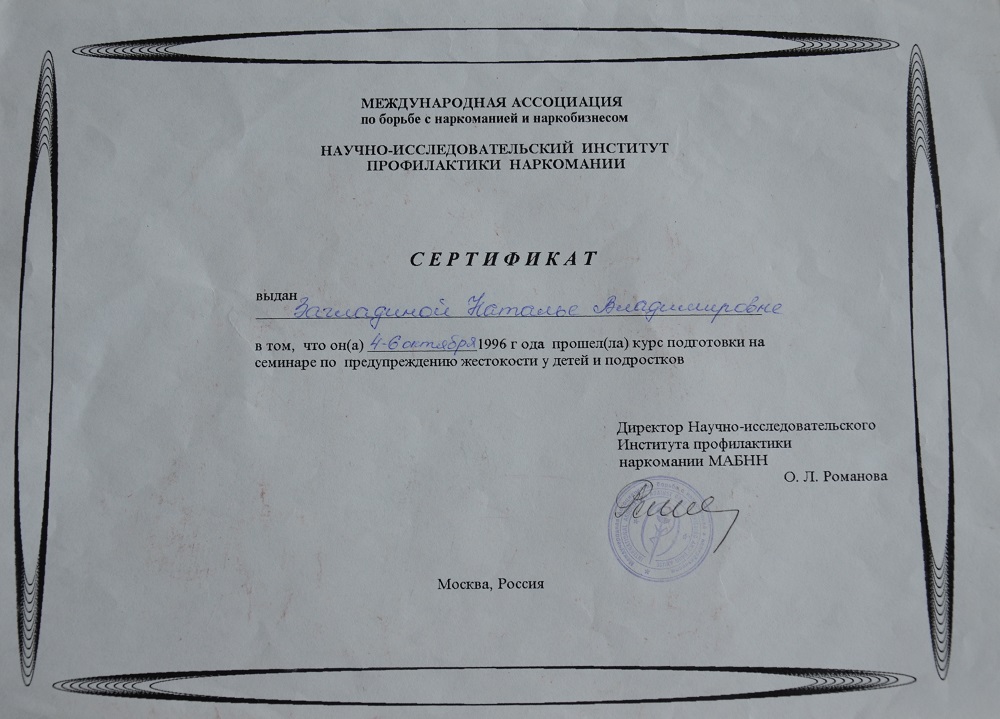 МЕЖДУНАРОДНАЯ АССОЦИАЦИЯ
по борьбе с наркоманией и наркобизнесом
НАУЧНО-ИССЛЕДОВАТЕЛЬСКИЙ ИНСТИТУТ
ПРОФИЛАКТИКИ НАРКОМАНИИ
СЕРТИФИКАТ
выдан
Наталье Владимировне
в том, что он(а) 4-6 октября 1996 г ода прошел(ла) курс подготовки на
семинаре по предупреждению жестокости у детей и подростков
Директор Научно-исследовательского
Института профилактики
наркомании МАБНН
О. Л. Романова
Москва, Россия